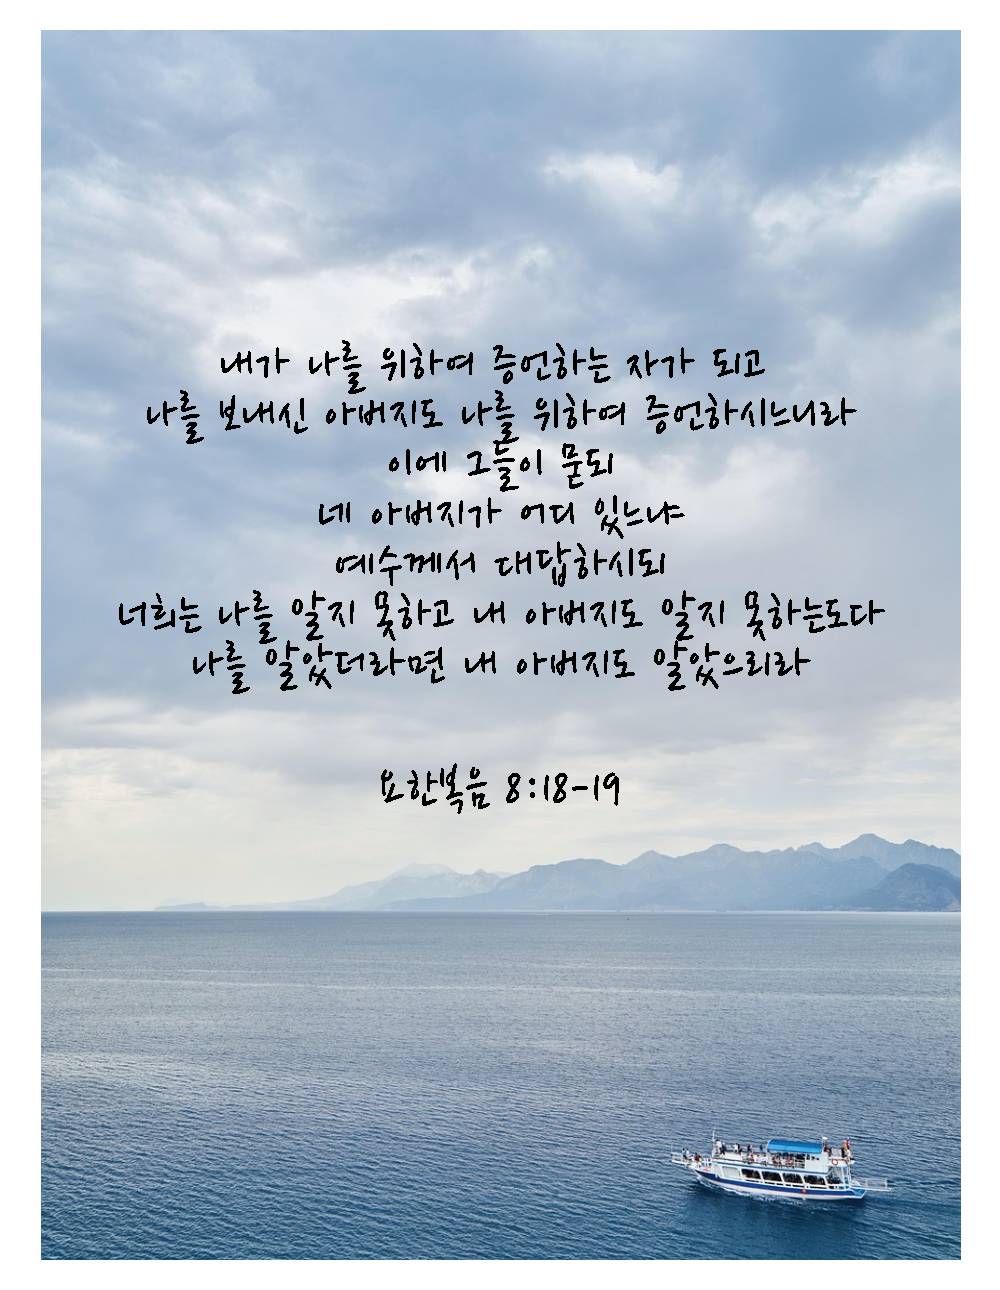 내가 나를 위하여 증언하는 자가 되고
나를 보내신 아버지도 나를 위하여 증언하시느니라
이에 그들이 묻되
네 아버지가 어디 있느냐
예수께서 대답하시되
너희는 나를 알지 못하고 내 아버지도 알지 못하는도다
나를 알았더라면 내 아버지도 알았으리라
요한복음 8:18-19